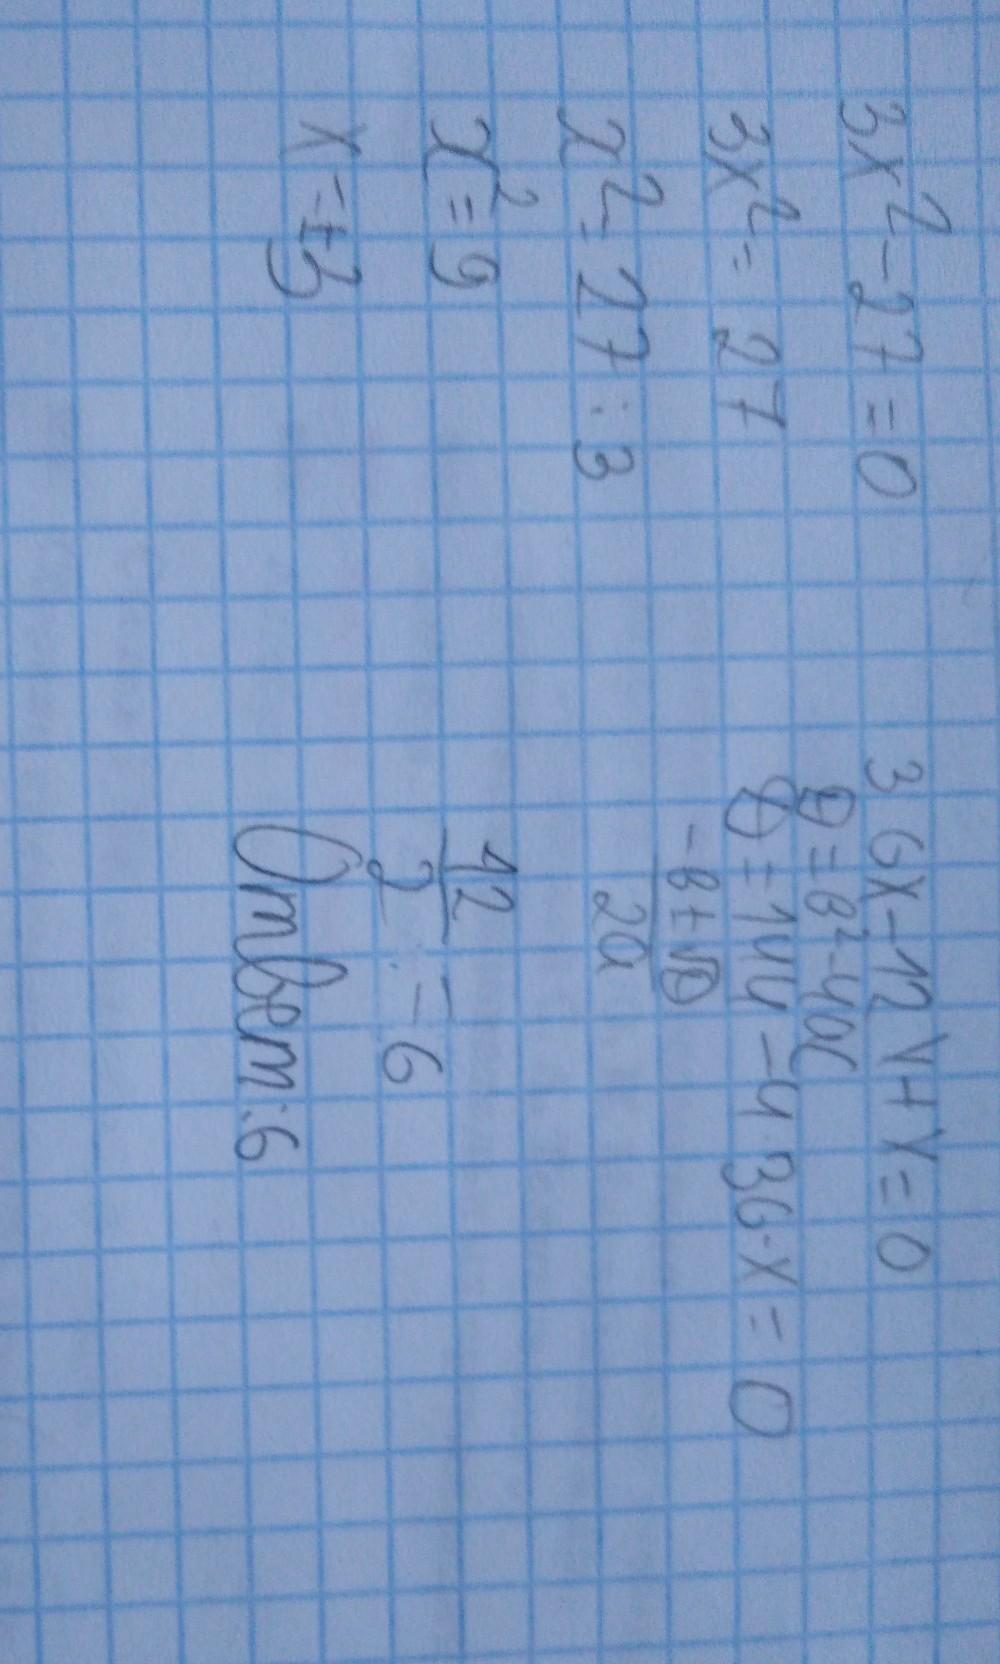 3x²-27=0
3x²= 27
x²=27:3
x²=9
x=±3
36x-12√+x=0
D=в²-4ac
D=144-4·36·x=0
-в±√D
2a
12
2
=6
Ответ:6